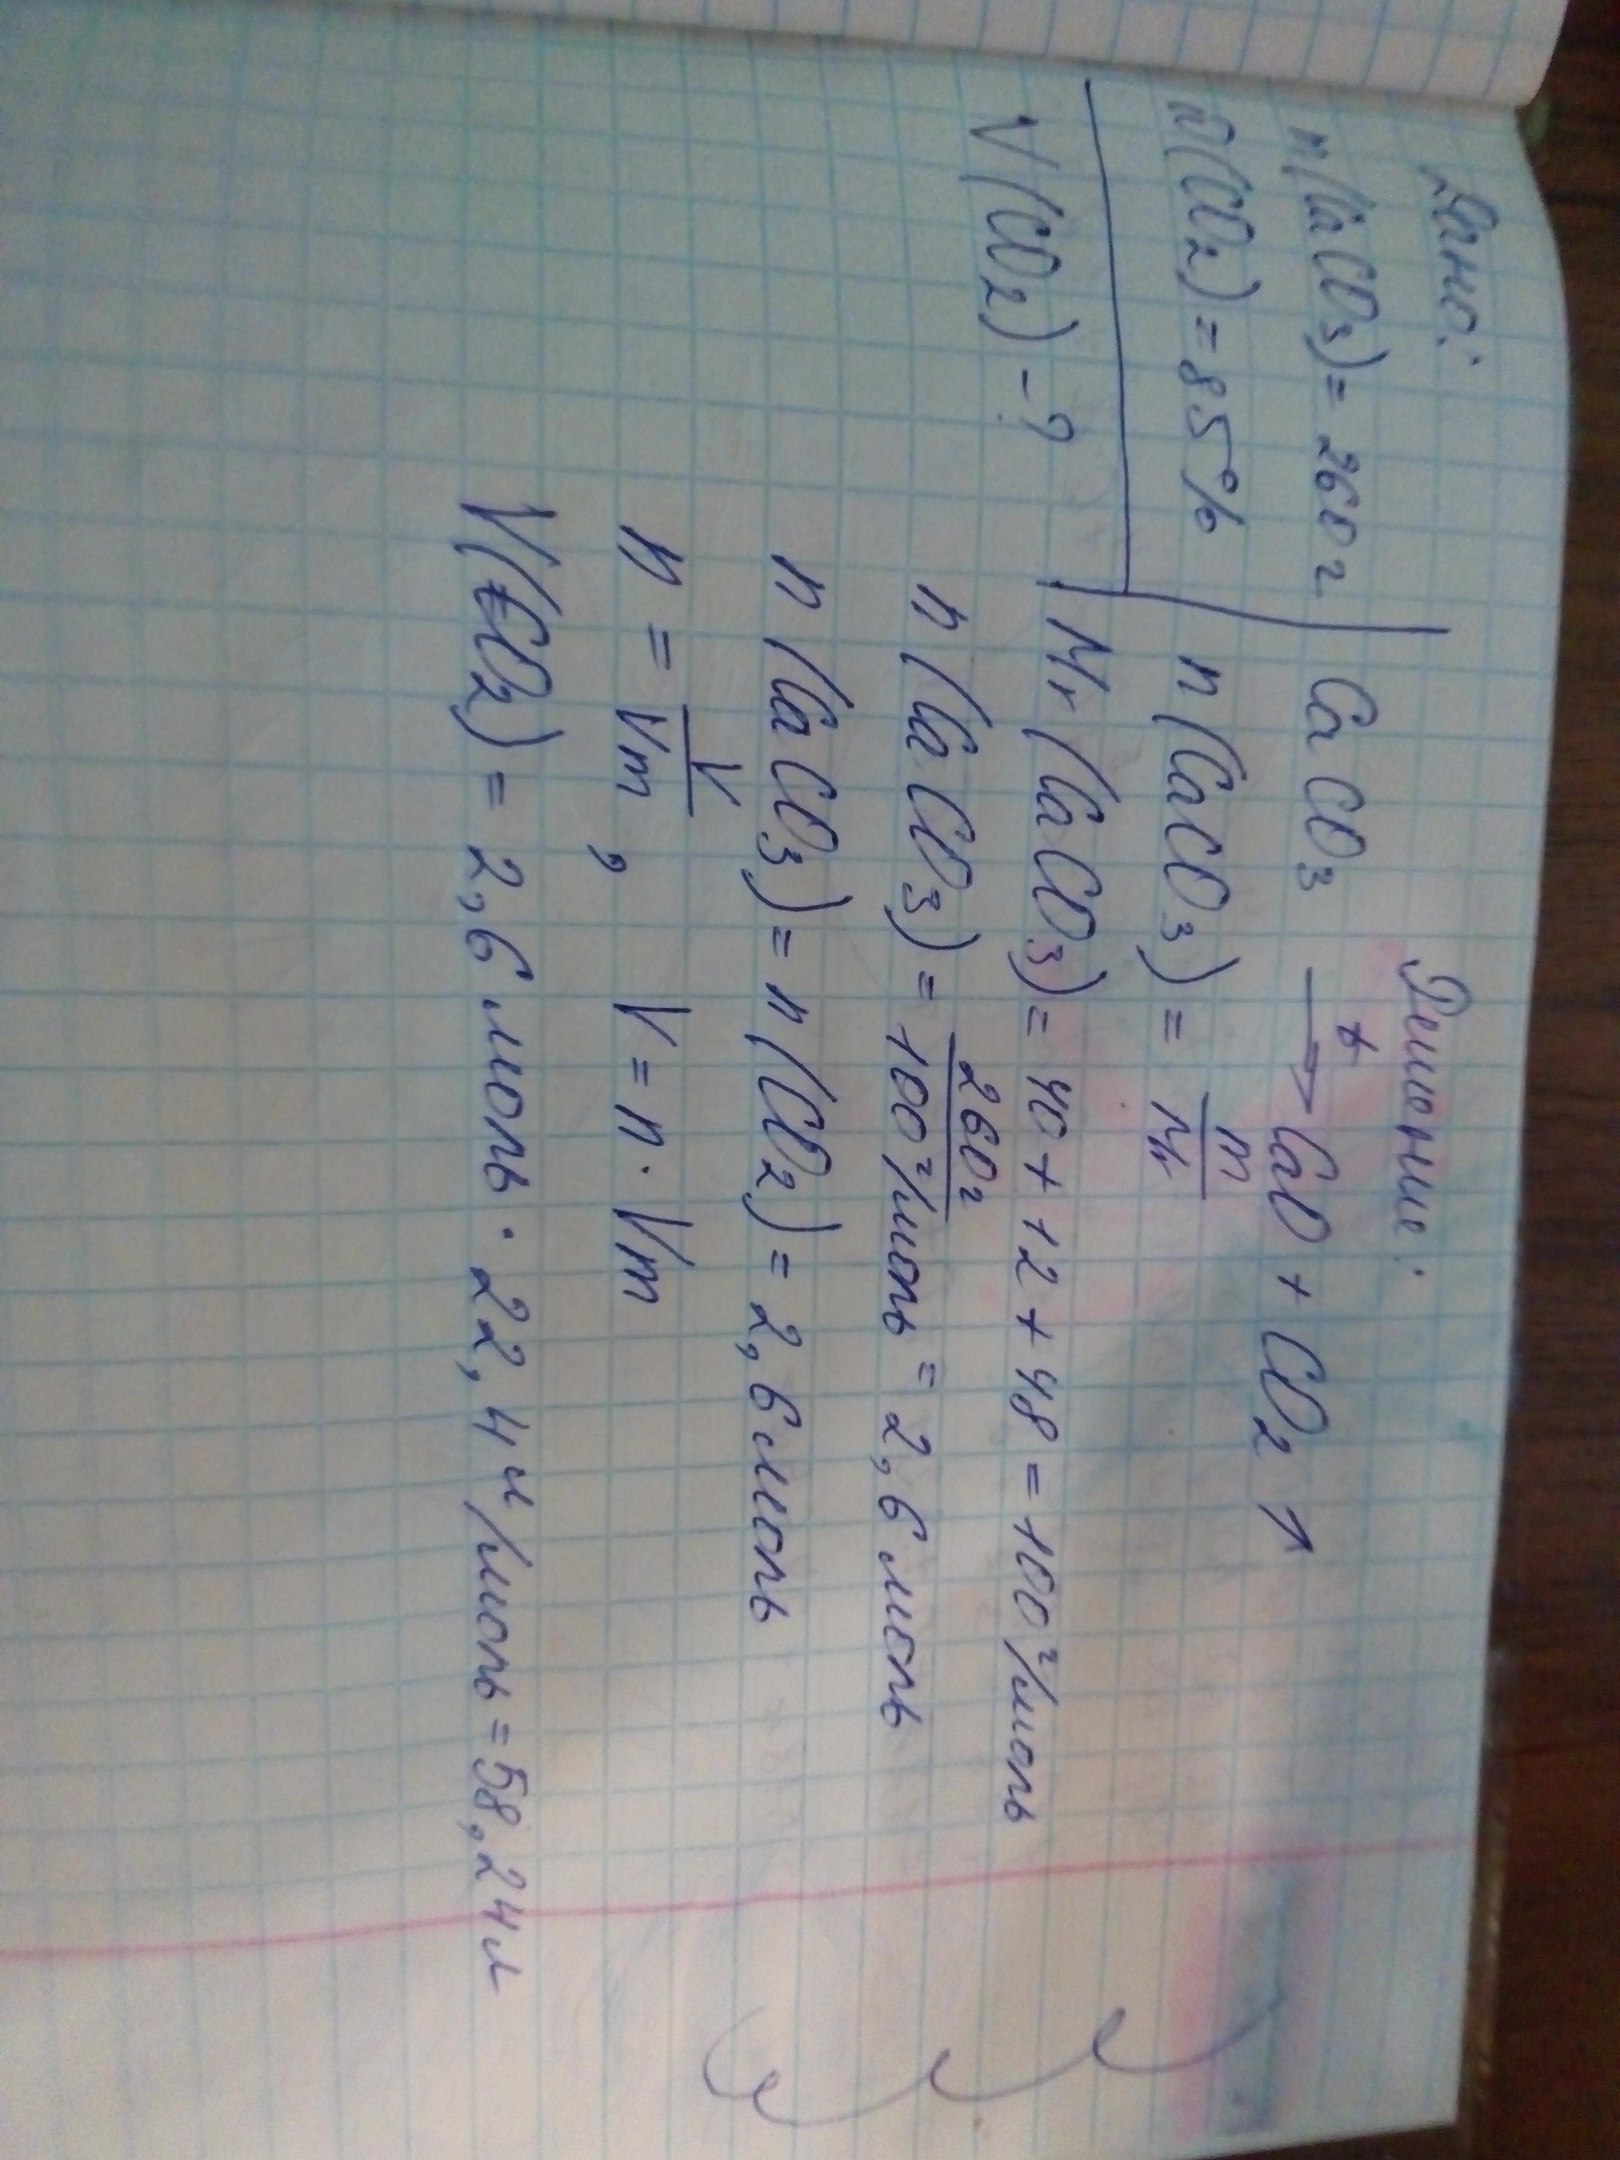 Дано:
m(CaCO3) = 260 г
ω(CO2) = 85%
V(CO2) - ?
Решение:
CaCO3 t→ CaO + CO2 ↑
n(CaCO3) = m/Mr
Mr(CaCO3) = 40 + 12 + 48 = 100 г/моль
n(CaCO3) = 260 г/100 г/моль = 2,6 моль
n(CaCO3) = n(CO2) = 2,6 моль
n = V/Vm, V = n · Vm
V(CO2) = 2,6 моль · 22,4 л/моль = 58,24 л